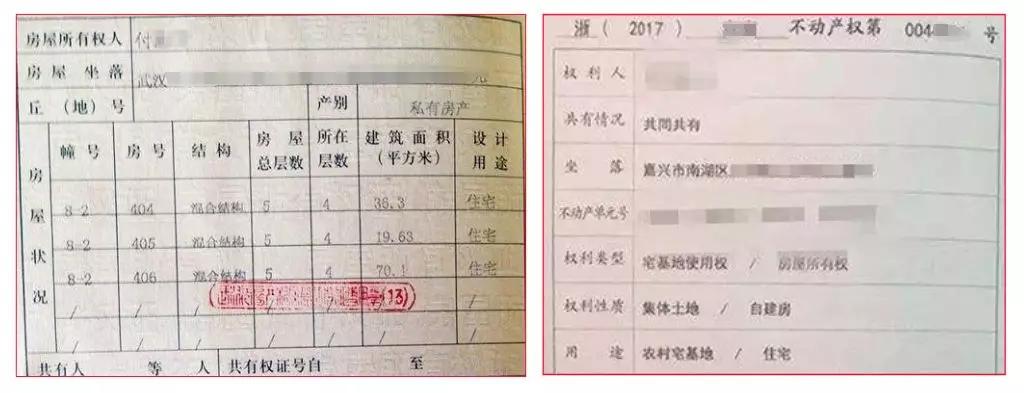 房屋所有权人 付
房屋坐落 武汉
丘（地）号 产别 私有房产
房屋状况 幢号 房号 结构 房屋总层数 所在层数 建筑面积（平方米） 设计用途
8-2 404 混合结构 5 4 36.3 住宅
8-2 405 混合结构 5 4 19.63 住宅
8-2 406 混合结构 5 4 70.1 住宅
(13)
/ / / / / / /
/ / / / / / /
共有人 等 人 共有权证号自 至
浙（2017） 不动产权第 004 号
权利人
共有情况 共同共有
坐落 嘉兴市南湖区
不动产单元号
权利类型 宅基地使用权 / 房屋所有权
权利性质 集体土地 / 自建房
用途 农村宅基地 / 住宅